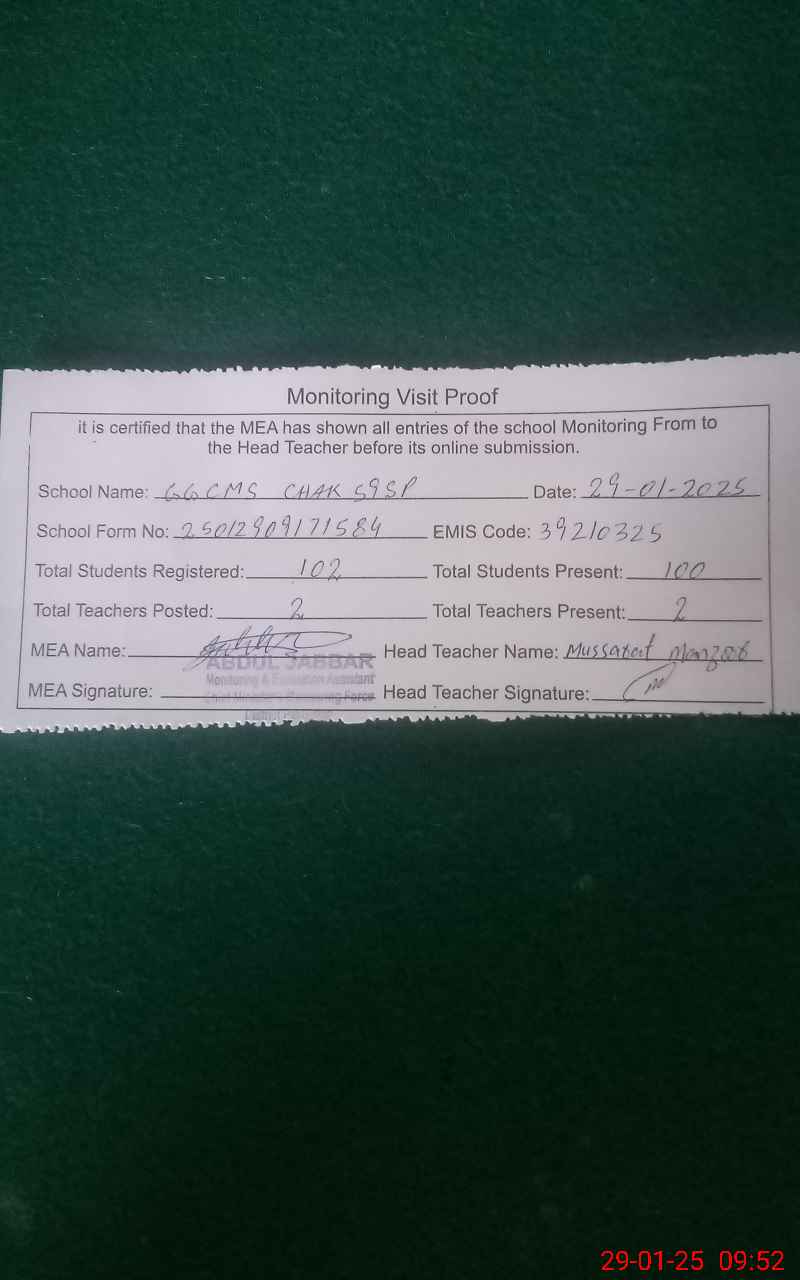 Monitoring Visit Proof
it is certified that the MEA has shown all entries of the school Monitoring From to
the Head Teacher before its online submission.
School Name: GGCMS CHAK 59SP Date: 29-01-2025
School Form No: 25012909171584 EMIS Code: 39210325
Total Students Registered: 102 Total Students Present: 100
Total Teachers Posted: 2 Total Teachers Present: 2
MEA Name: Head Teacher Name: Mussarat Manzoor
ABDUL JABBAR
Monitoring & Evaluation Assistant
MEA Signature: Head Teacher Signature:
Chief Minister's Monitoring Force
29-01-25 09:52